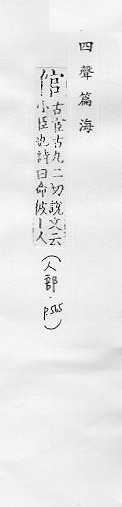 四聲篇海
倌
古宦古丸二切說文云
小臣也詩曰命彼丨人
(人部.p.565)